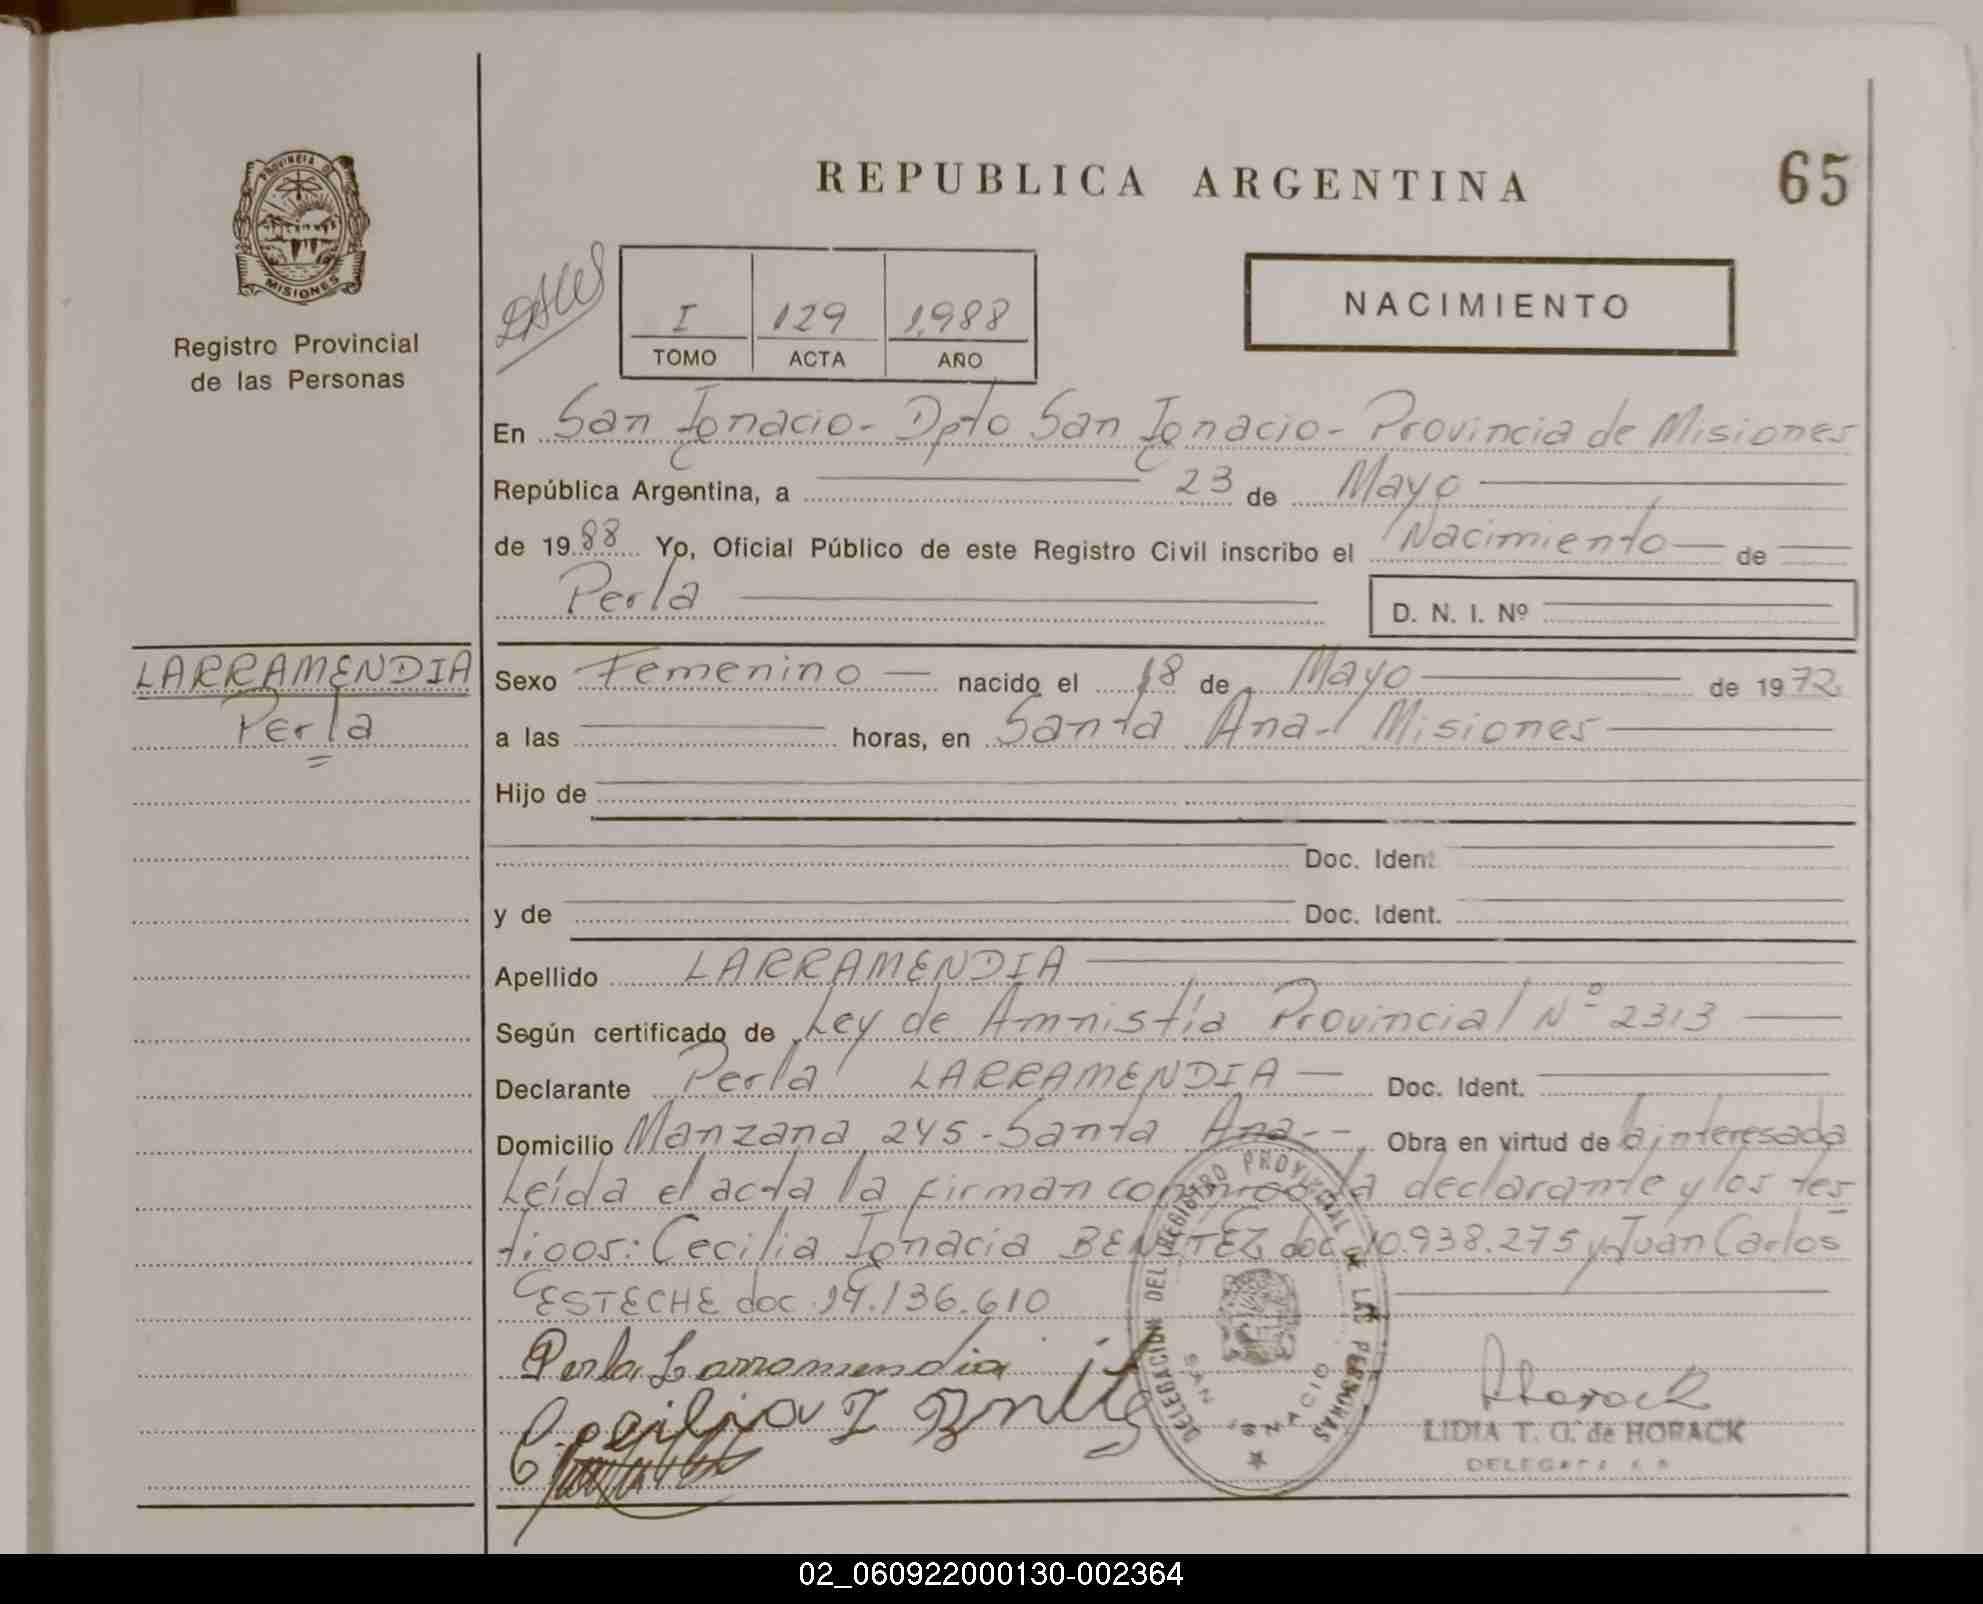 REPUBLICA ARGENTINA
65
PROVINCIA DE
MISIONES
Registro Provincial
de las Personas
I 129 1.988
TOMO ACTA AÑO
NACIMIENTO
En San Ignacio - Dpto San Ignacio - Provincia de Misiones
República Argentina, a 23 de Mayo
de 1988 Yo, Oficial Público de este Registro Civil inscribo el Nacimiento de
Perla
D. N. I. Nº
LARRAMENDIA
Perla
Sexo Femenino nacido el 18 de Mayo de 1972
a las horas, en Santa Ana - Misiones
Hijo de
Doc. Ident.
y de Doc. Ident.
Apellido LARRAMENDIA
Según certificado de Ley de Amnistía Provincial Nº 2313
Declarante Perla LARRAMENDIA Doc. Ident.
Domicilio Manzana 245 - Santa Ana -- Obra en virtud de la interesada
Leída el acta la firman conmigo la declarante y los tes
tigos: Cecilia Ignacia BENITEZ doc 10.938.275 y Juan Carlos
ESTECHE doc. 14.136.610
Perla Larramendia
Cecilia I Bnitez
DELEGACION DEL REGISTRO PROVINCIAL DE LAS PERSONAS
SAN IGNACIO
Horack
LIDIA T. G. de HORACK
DELEGADA
02_060922000130-002364